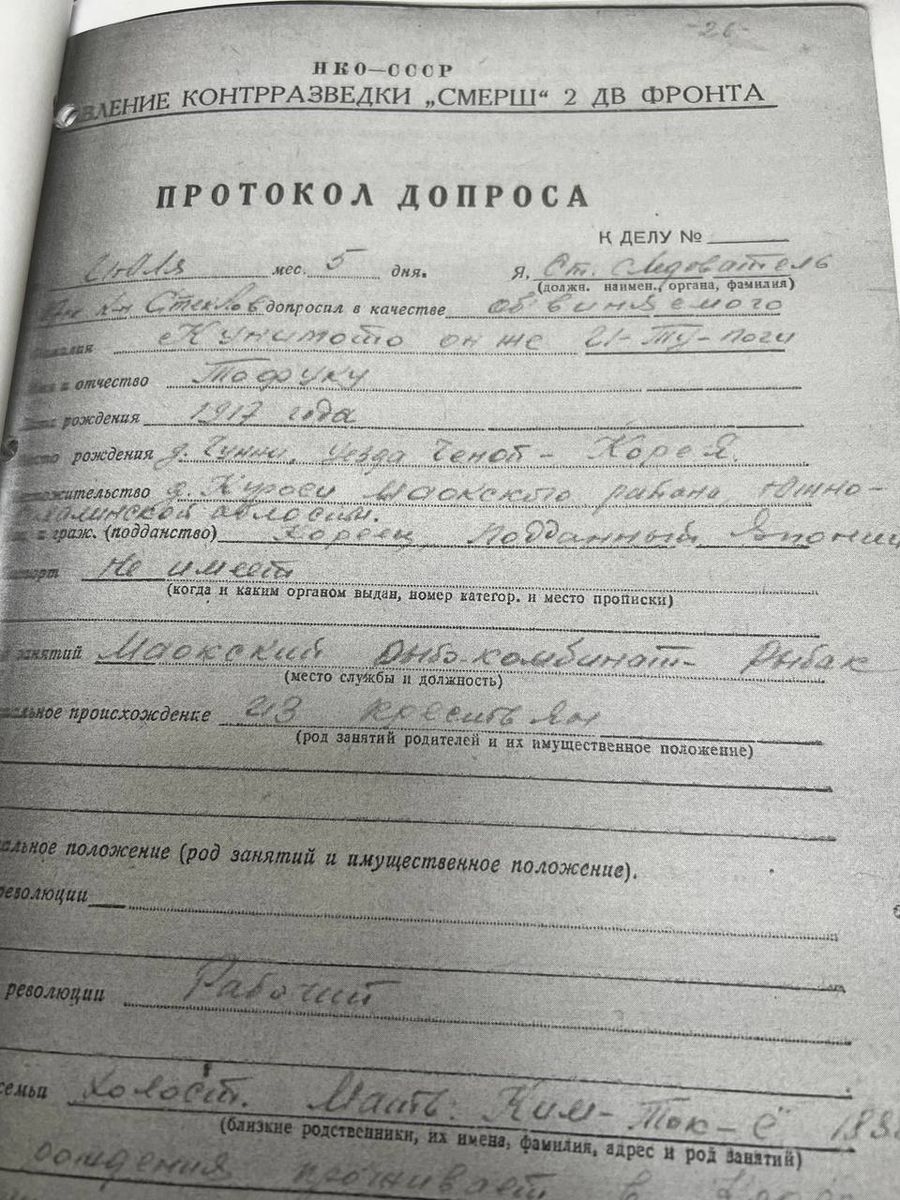 -26-
НКО—СССР
ВЛЕНИЕ КОНТРРАЗВЕДКИ „СМЕРШ“ 2 ДВ ФРОНТА
ПРОТОКОЛ ДОПРОСА
К ДЕЛУ №
Июля мес. 5 дня. Я, Ст. следователь
(должн. наимен., органа, фамилия)
к-н Стеклов допросил в качестве обвиняемого
Фамилия Кунимото он же И-Ту-Поги
и отчество Тофуку
рождения 1917 года
рождения д. Чунни, уезда Ченоп - Корея.
жительство д. Куроси Маокского района Южно-
халинской области.
и граж. (подданство) Кореец, подданный Японии
порт Не имеет
(когда и каким органом выдан, номер категор. и место прописки)
занятий Маокский рыбо-комбинат - Рыбак
(место службы и должность)
альное происхождение из крестьян
(род занятий родителей и их имущественное положение)
альное положение (род занятий и имущественное положение).
революции
революции Рабочий
семьи Холост. Мать: Ким-Ток-Ё
(близкие родственники, их имена, фамилия, адрес и род занятий)
рождения проживает в